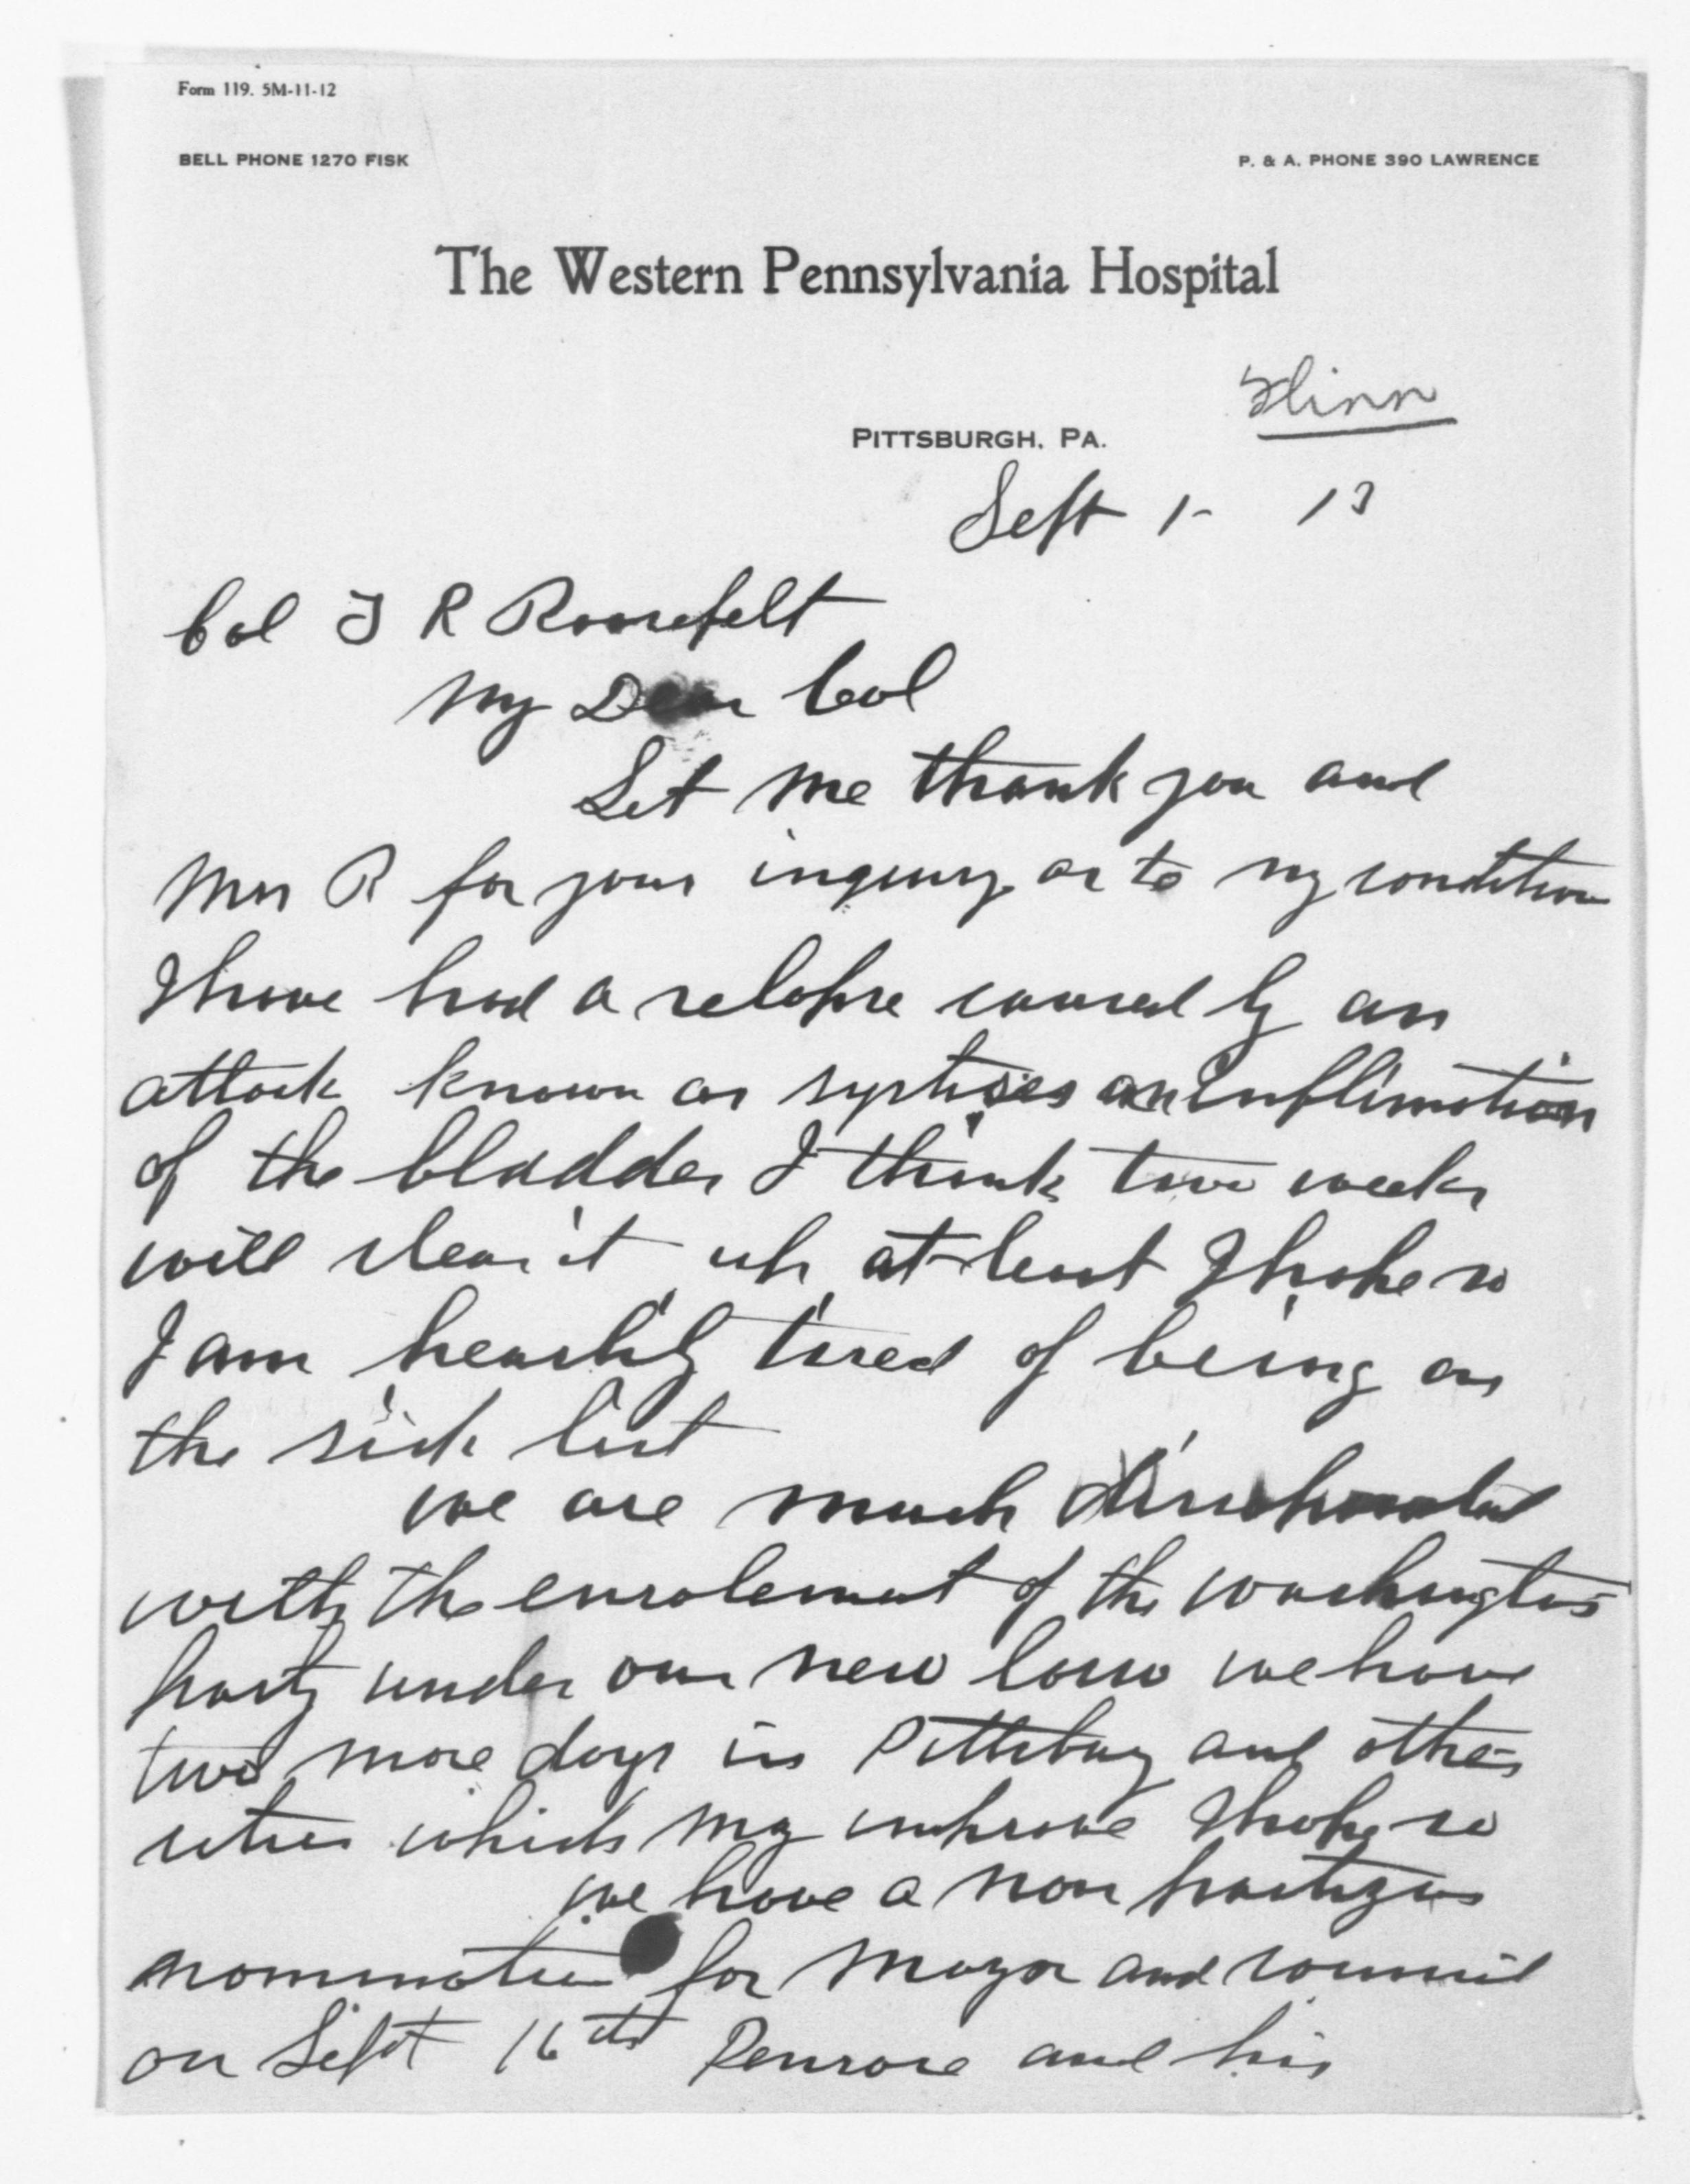 Form 119. 5M-11-12
BELL PHONE 1270 FISK
P. & A. PHONE 390 LAWRENCE
The Western Pennsylvania Hospital
Flinn
PITTSBURGH, PA.
Sept 1- 13
Col T R Roosefelt
My Dear Col
Let me thank you and
Mrs R for your inquiry as to my condition
I have had a relapse caused by an
attack known as systises an inflimation
of the bladder I think two weeks
will clear it up at least I hope so
I am heartily tired of being on
the sick list
we are much
with the enrolement of the Washington
party under our new law we have
two more days in Pittsburg and other
cities which my improve I hope so
we have a non partizan
nomination for Mayor and council
on Sept 16th Penrose and his